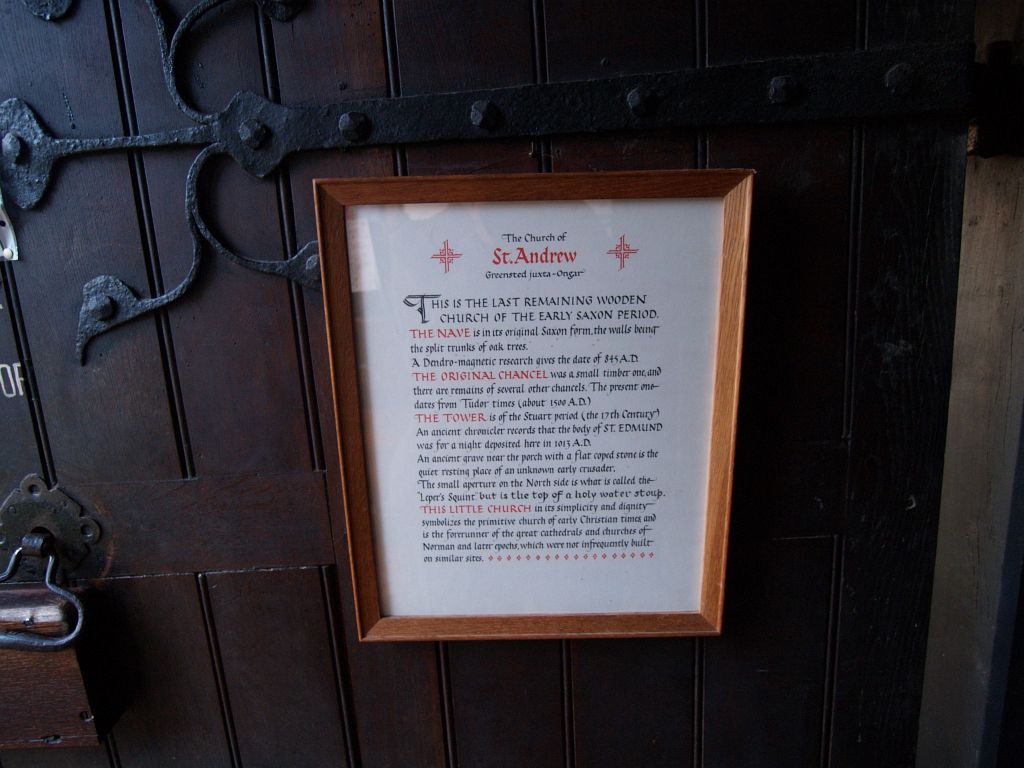 The Church of
St. Andrew
Greensted juxta-Ongar
THIS IS THE LAST REMAINING WOODEN
CHURCH OF THE EARLY SAXON PERIOD.
THE NAVE is in its original Saxon form, the walls being
the split trunks of oak trees.
A Dendro-magnetic research gives the date of 845 A.D.
THE ORIGINAL CHANCEL was a small timber one, and
there are remains of several other chancels. The present one
dates from Tudor times (about 1500 A.D.)
THE TOWER is of the Stuart period (the 17th Century)
An ancient chronicler records that the body of ST. EDMUND
was for a night deposited here in 1013 A.D.
An ancient grave near the porch with a flat coped stone is the
quiet resting place of an unknown early crusader.
The small aperture on the North side is what is called the
"Leper's Squint" but is the top of a holy water stoup.
THIS LITTLE CHURCH in its simplicity and dignity
symbolizes the primitive church of early Christian times, and
is the forerunner of the great cathedrals and churches of
Norman and later epochs, which were not infrequently built
on similar sites.
OF